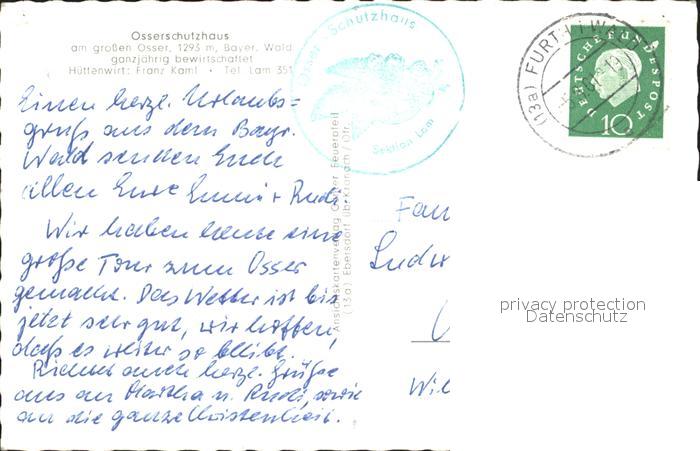 Osserschutzhaus
am großen Osser, 1293 m, Bayer. Wald
ganzjährig bewirtschaftet
Hüttenwirt: Franz Kaml • Tel. Lam 351
Osser-Schutzhaus
Sektion Lam
(13a) FURTH I WALD
DEUTSCHE BUNDESPOST
10
Einen herzl. Urlaubs=
gruß aus dem Bayr.
Wald senden Euch
allen Eure Emmi + Rudi
Wir haben heute eine
große Tour zum Osser
gemacht. Das Wetter ist bis
jetzt sehr gut, wir hoffen,
daß es weiter so bleibt.
Richtet auch herzl. Grüße
aus an Martha u. Rudi, sowie
an die ganze
Ansichtskartenverlag Oskar Feuerpfeil
(13a) Ebersdorf üb. Kronach / Ofr.
Fam
Ludw
Wil
privacy protection
Datenschutz